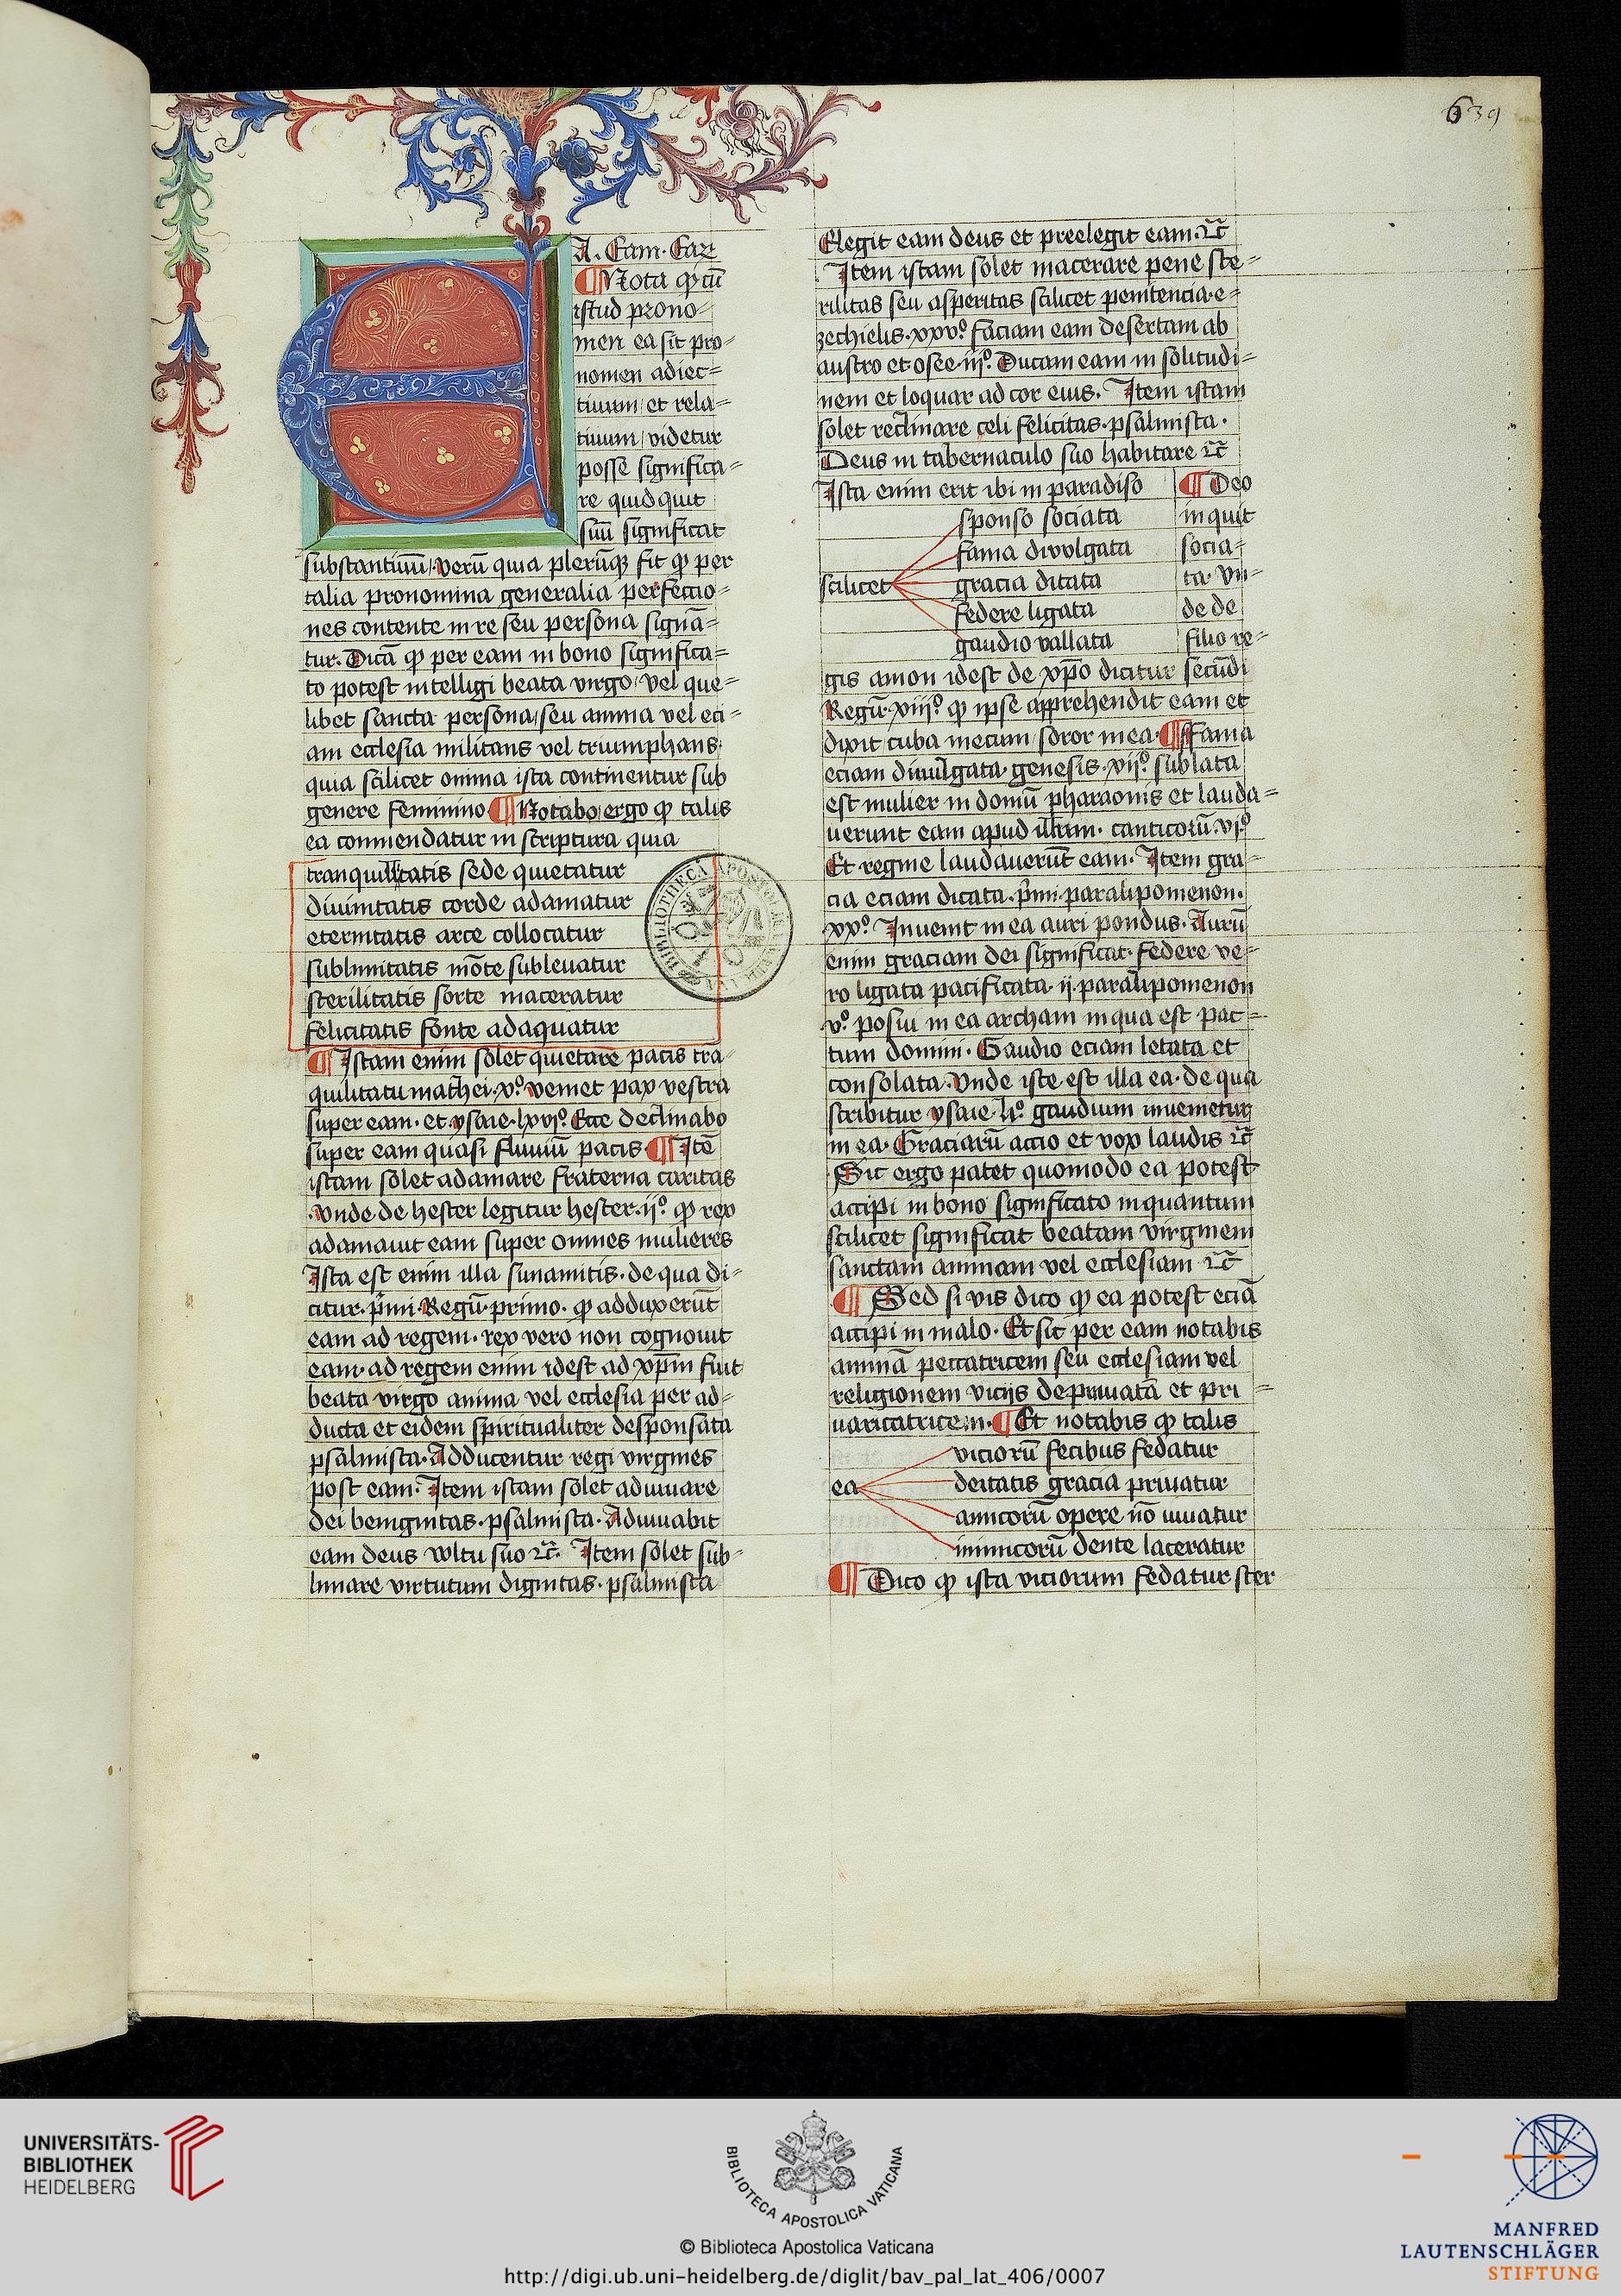 639
EA. Eam. Eaꝝ
¶ Nota ꝙ cū
istud prono⸗
men ea sit pro⸗
nomen adiec⸗
tiuum / et rela⸗
tiuum / videtur
posse significa⸗
re quidquit
suū significat
substantiuū / verū quia plerūqꝫ fit ꝙ per
talia pronomina generalia perfectio⸗
nes contente in re seu persona signā⸗
tur. Dicā ꝙ per eam in bono significa⸗
to potest intelligi beata virgo / vel que⸗
libet sancta persona / seu anima vel eci⸗
am ecclesia militans vel triumphans
quia scilicet omnia ista continentur sub
genere feminino ¶ Notabo ergo ꝙ talis
ea commendatur in scriptura quia
tranquillitatis sede quietatur
diuinitatis corde adamatur
eternitatis arce collocatur
sublimitatis mōte subleuatur
sterilitatis sorte maceratur
felicitatis fonte adaquatur
¶ Istam enim solet quietare pacis tra⸗
quilitatu mathei .xº. veniet pax vestra
super eam. et ysaie .lxviº. Ecce declinabo
super eam quasi fluuiū pacis ¶ Itē
istam solet adamare fraterna caritas
. vnde de hester legitur hester .iiº. ꝙ rex
adamauit eam super omnes mulieres
Ista est enim illa sunamitis. de qua di⸗
citur. p̄mi Regū primo. ꝙ adduxerūt
eam ad regem. rex vero non cognouit
eam. ad regem enim idest ad xp̄m fuit
beata virgo anima vel ecclesia per ad⸗
ducta et eidem spiritualiter desponsata
psalmista. Adducentur regi virgines
post eam. Item istam solet adiuuare
dei benignitas. psalmista. Adiuuabit
eam deus vvltu suo ⁊c̄. Item solet sub⸗
limare virtutum dignitas. psalmista
Elegit eam deus et preelegit eam. ⁊c̄
Item istam solet macerare pene ste⸗
rilitas seu asperitas scilicet penitencia. e⸗
zechielis .xxvº. faciam eam desertam ab
austro et osee .iiº. Ducam eam in solitudi⸗
nem et loquar ad cor eius. Item istam
solet reclinare celi felicitas. psalmista.
Deus in tabernaculo suo habitare ⁊c̄
Ista enim erit ibi in paradiso
scilicet
sponso sociata
fama divolgata
gracia ditata
federe ligata
gaudio vallata
¶ Deo
inquit
socia⸗
ta. vn⸗
de de
filio re⸗
gis amon idest de xp̄o dicitur secūdi
Regū .xiijº. ꝙ ipse apprehendit eam et
dixit / cuba mecum / soror mea. ¶ Fama
eciam diuulgata. genesis .xijº. sublata
est mulier in domū pharaonis et lauda⸗
uerunt eam apud illum. canticorū .viº.
Et regine laudauerūt eam. Item gra⸗
cia eciam dicata. p̄mi. paralipomenon.
xxº. Inuenit in ea auri pondus. Aurū
enim graciam dei significat. federe ve⸗
ro ligata pacificata. ij. paralipomenon
vº. posui in ea archam in qua est pac⸗
tum domini. Gaudio eciam letata et
consolata. vnde iste est illa ea. de qua
scribitur ysaie. liº. gaudium inuenietur
in ea. Graciarū accio et vox laudis ⁊c̄
. Sic ergo patet quomodo ea potest
accipi in bono significato inquantum
scilicet significat beatam virginem
sanctam animam vel ecclesiam ⁊c̄
¶ Sed si vis dico ꝙ ea potest eciā
accipi in malo. Et sic per eam notabis
animā peccatricem seu ecclesiam vel
religionem vicijs deprauatā et pri⸗
uaricatricem. ¶ Et notabis ꝙ talis
ea
viciorū fecibus fedatur
deitatis gracia priuatur
amicorū opere nō iuuatur
inimicorū dente laceratur
¶ Dico ꝙ ista viciorum fedatur ster
BIBLIOTHECA APOSTOLICA
UNIVERSITÄTS-
BIBLIOTHEK
HEIDELBERG
BIBLIOTECA APOSTOLICA VATICANA
© Biblioteca Apostolica Vaticana
http://digi.ub.uni-heidelberg.de/diglit/bav_pal_lat_406/0007
MANFRED
LAUTENSCHLÄGER
STIFTUNG